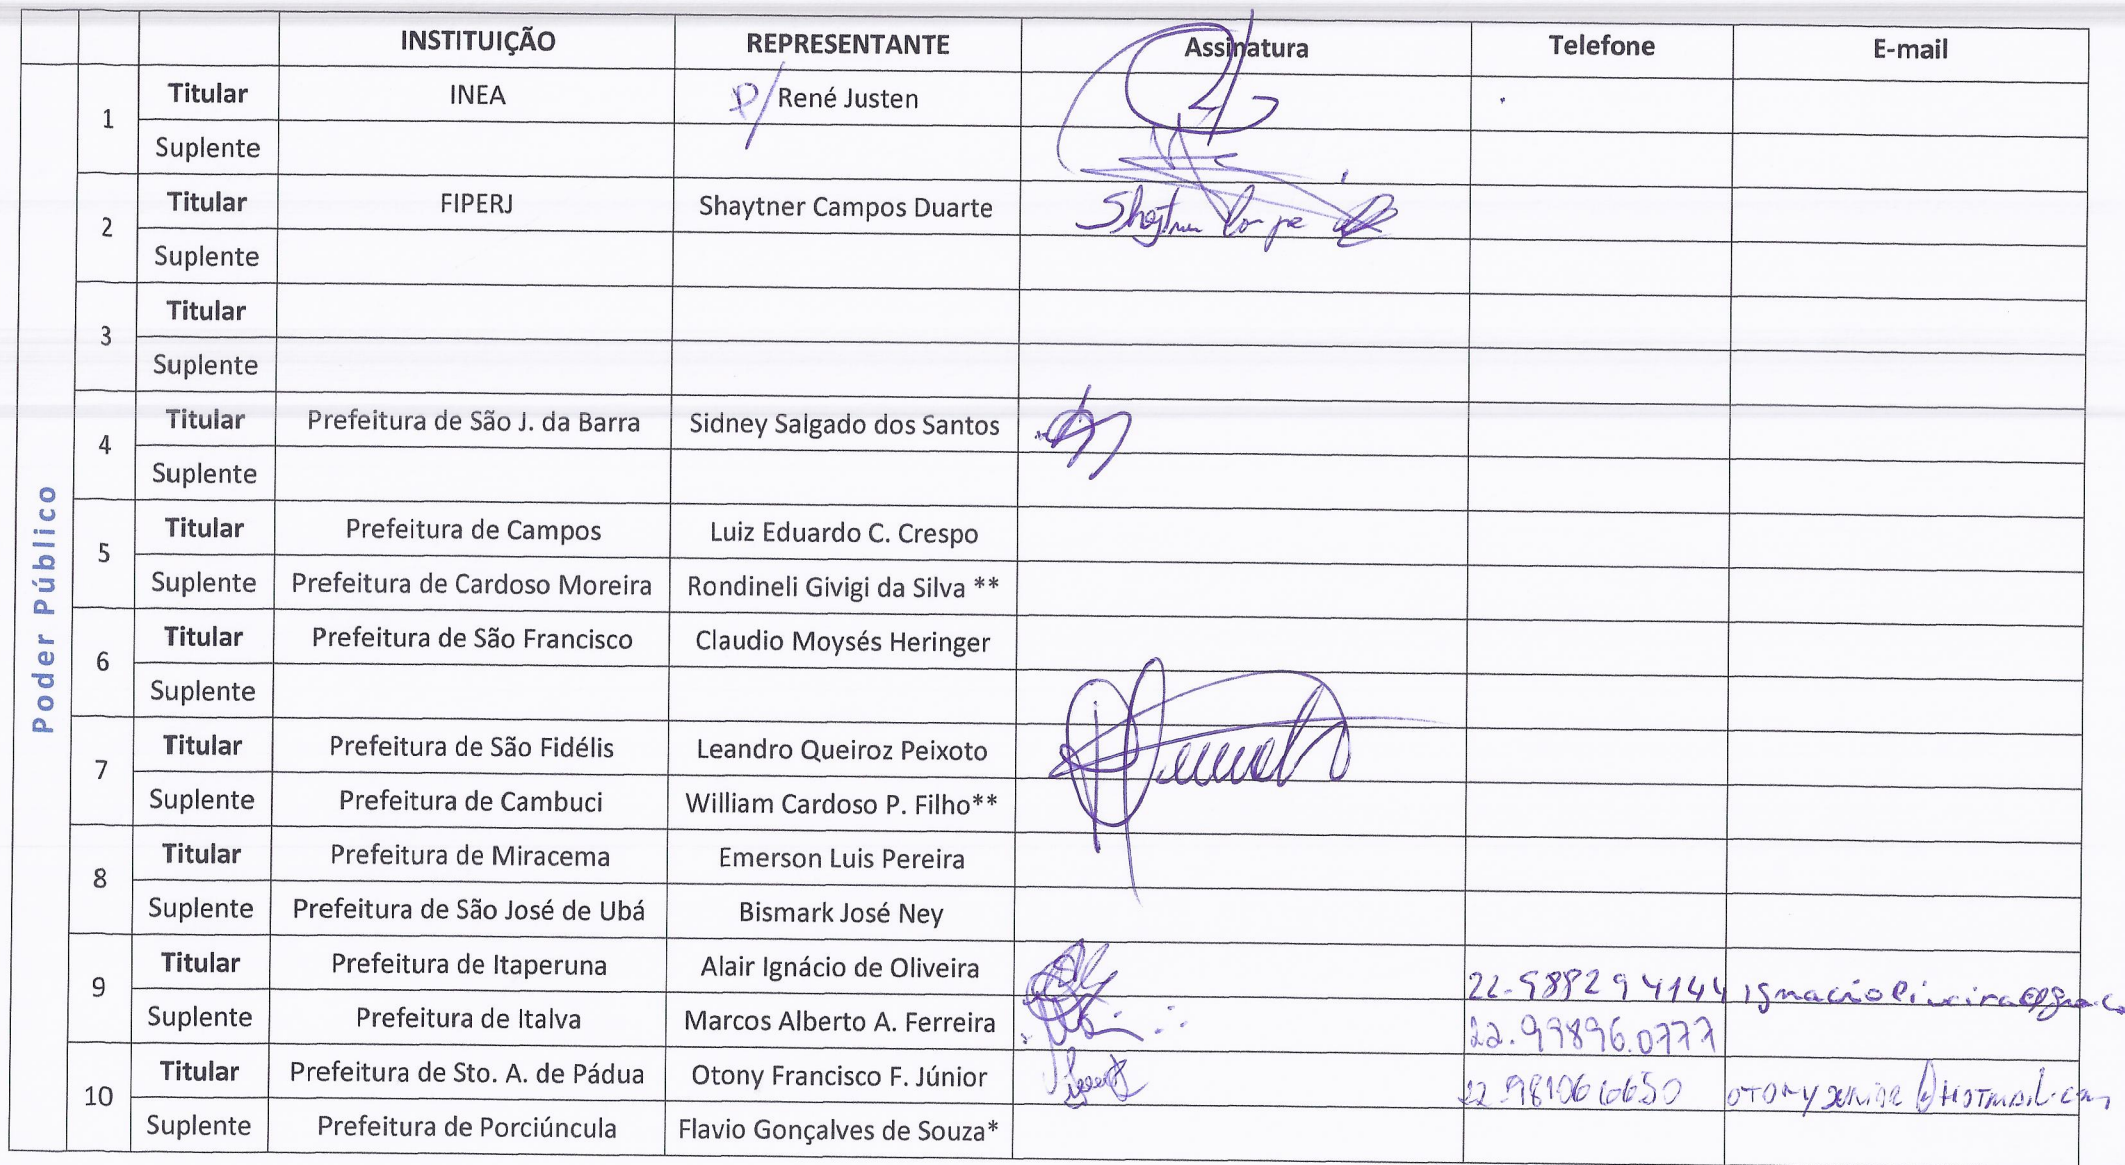 INSTITUIÇÃO REPRESENTANTE Assinatura Telefone E-mail
Poder Público
1 Titular INEA P/ René Justen
Suplente
2 Titular FIPERJ Shaytner Campos Duarte
Suplente
3 Titular
Suplente
4 Titular Prefeitura de São J. da Barra Sidney Salgado dos Santos
Suplente
5 Titular Prefeitura de Campos Luiz Eduardo C. Crespo
Suplente Prefeitura de Cardoso Moreira Rondineli Givigi da Silva **
6 Titular Prefeitura de São Francisco Claudio Moysés Heringer
Suplente
7 Titular Prefeitura de São Fidélis Leandro Queiroz Peixoto
Suplente Prefeitura de Cambuci William Cardoso P. Filho**
8 Titular Prefeitura de Miracema Emerson Luis Pereira
Suplente Prefeitura de São José de Ubá Bismark José Ney
9 Titular Prefeitura de Itaperuna Alair Ignácio de Oliveira 22-988294144
Suplente Prefeitura de Italva Marcos Alberto A. Ferreira 22.99896.0777
10 Titular Prefeitura de Sto. A. de Pádua Otony Francisco F. Júnior 22.981066650 OTONYJUNIOR@HOTMAIL.COM
Suplente Prefeitura de Porciúncula Flavio Gonçalves de Souza*